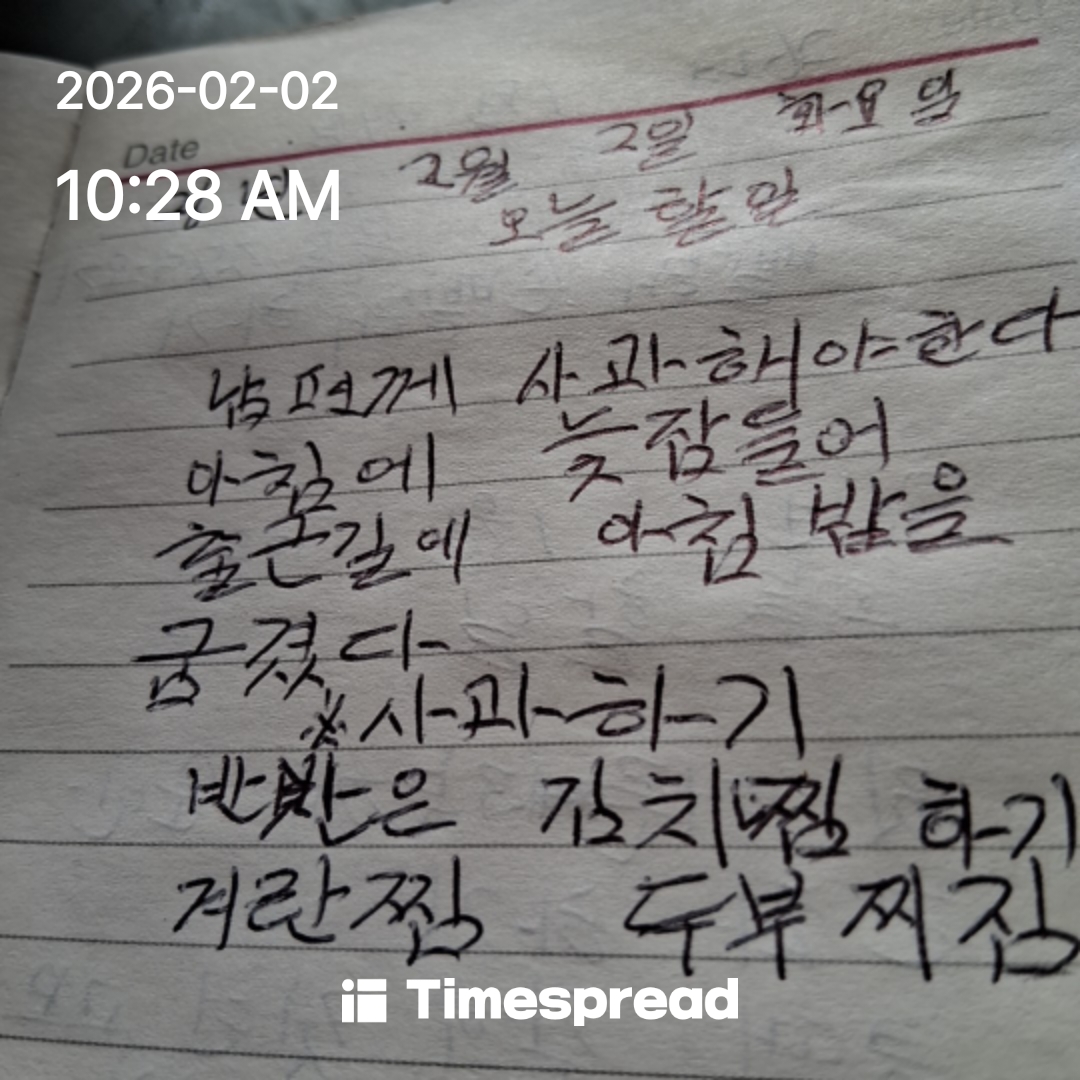 2026-02-02
Date
10:28 AM
2월 2일 화요일
오늘 할 일
남편께 사과해야한다
아침에 늦잠들어
출근길에 아침 밥을
굼겼다
※사과하기
반반은 김치찜 하기
겨란찜 두부찌짐
Timespread